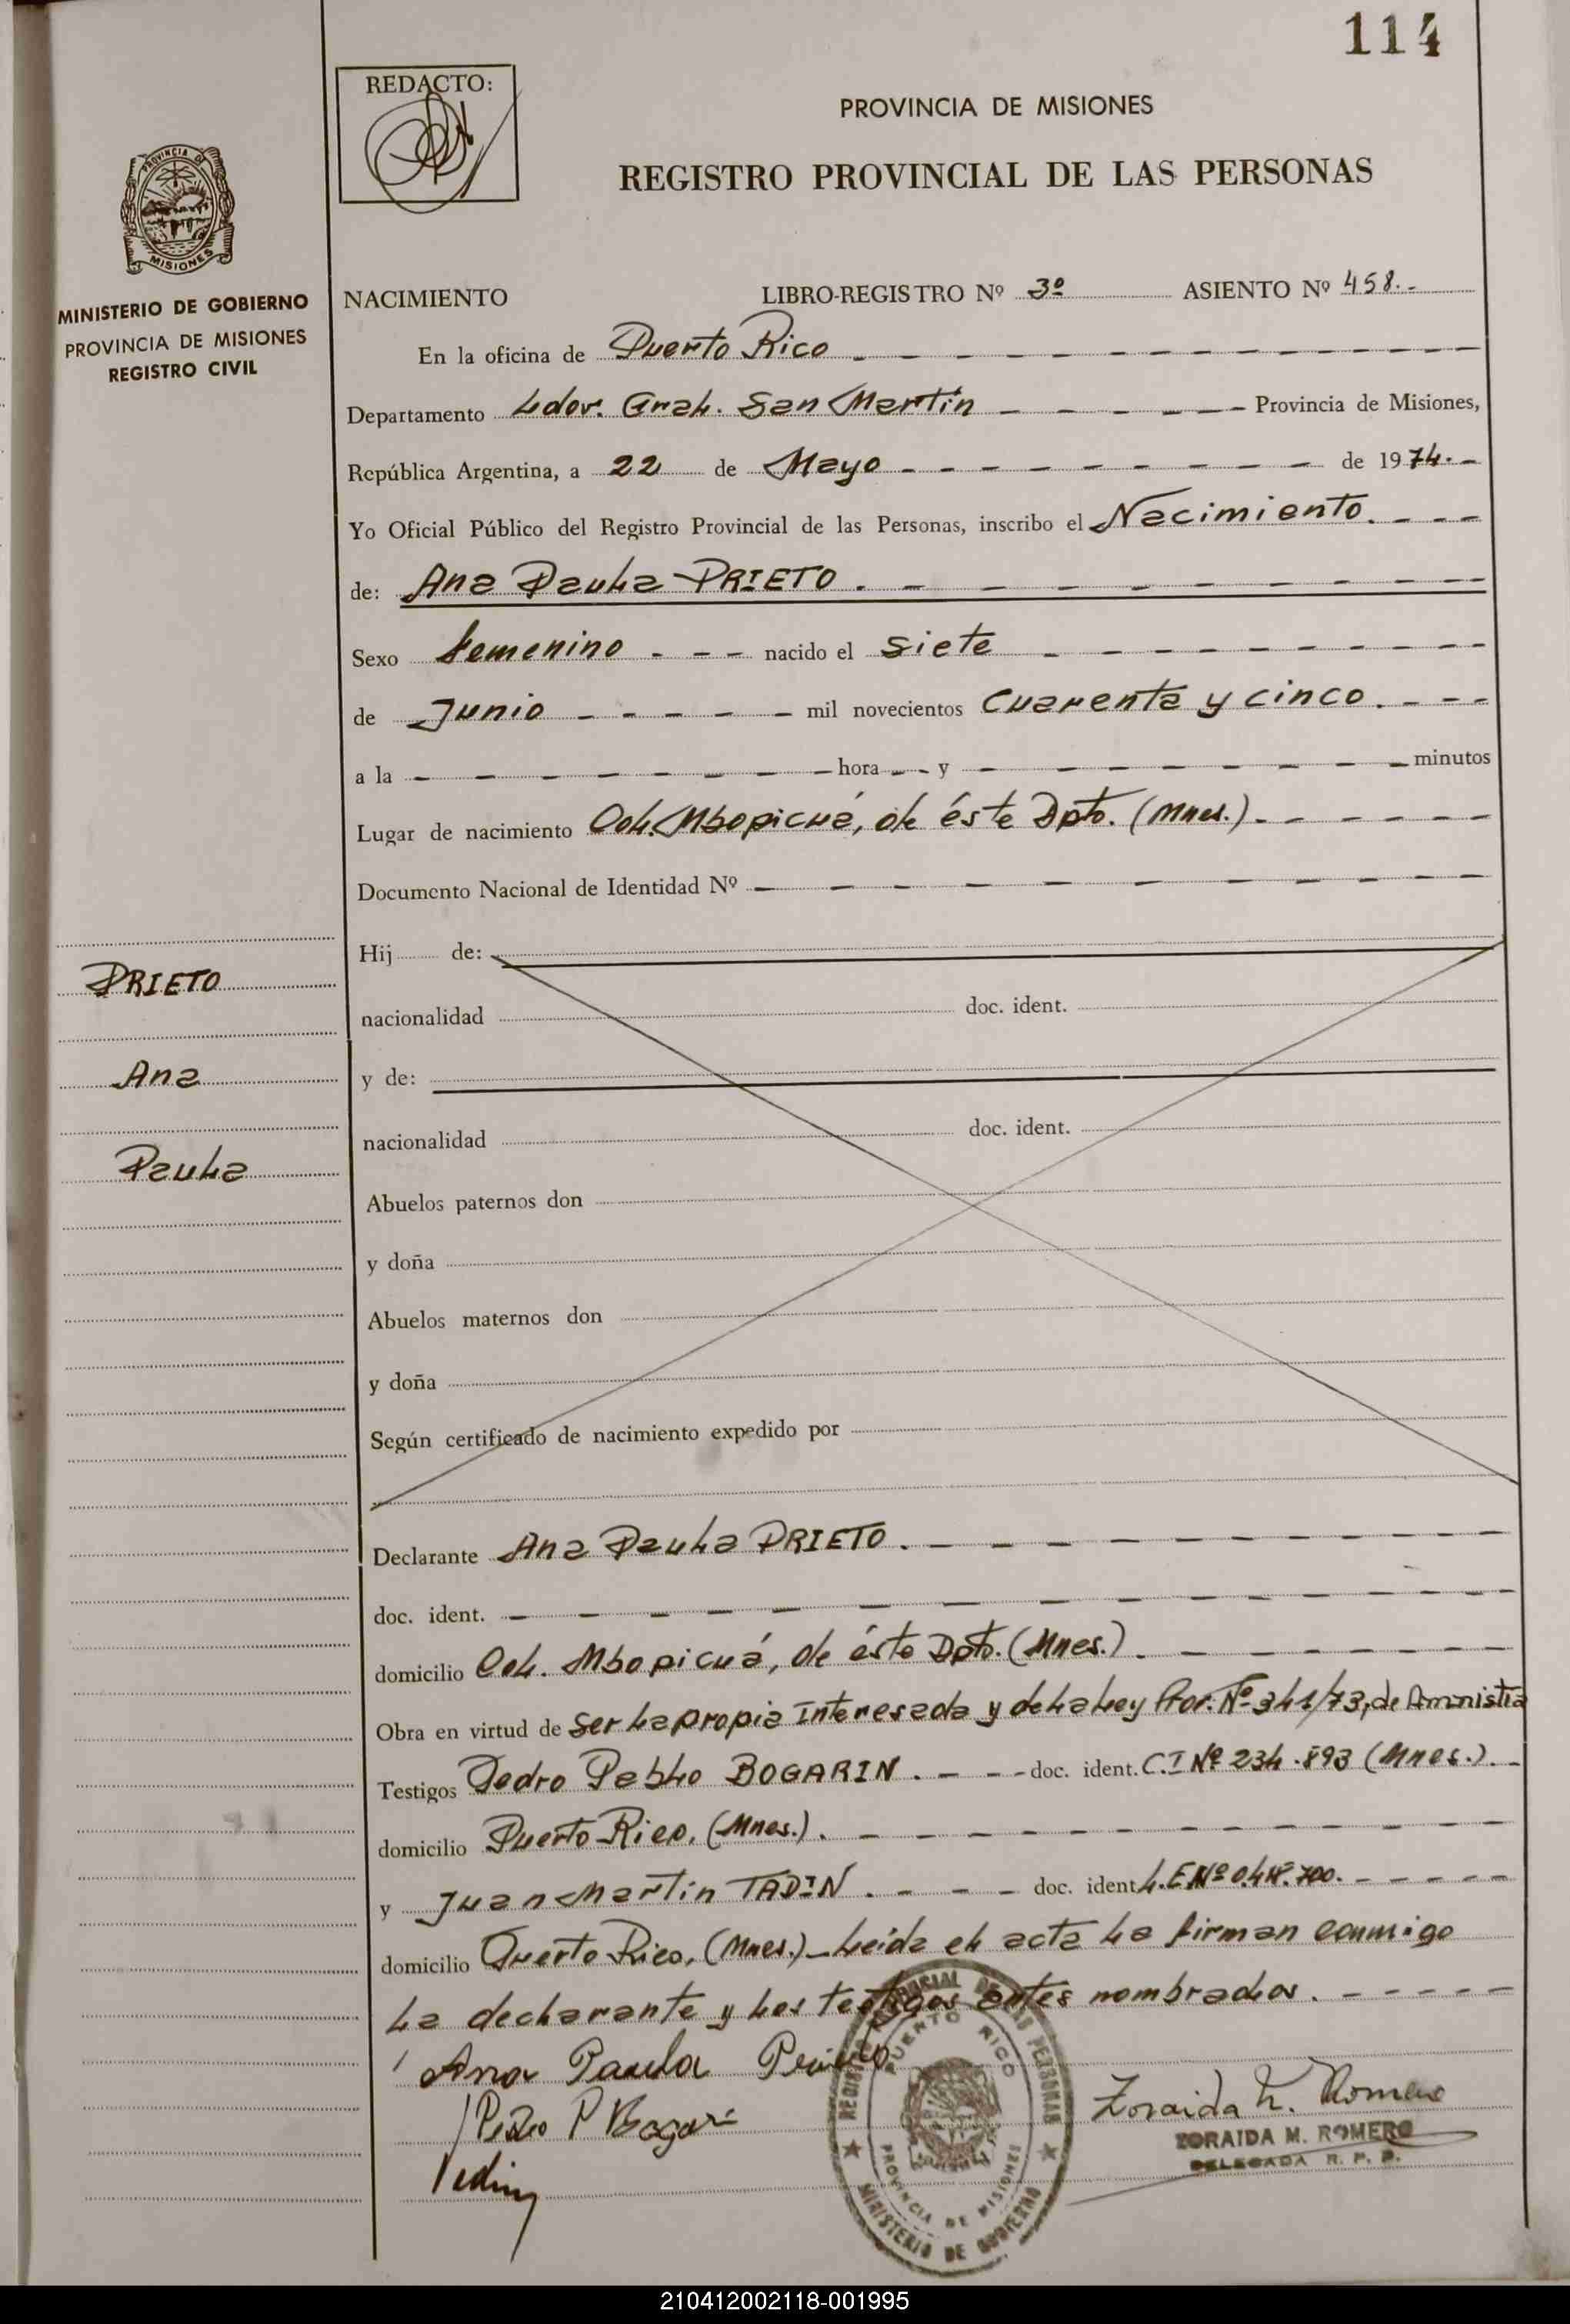 114
REDACTO:
PROVINCIA DE MISIONES
REGISTRO PROVINCIAL DE LAS PERSONAS
PROVINCIA DE
MISIONES
MINISTERIO DE GOBIERNO
PROVINCIA DE MISIONES
REGISTRO CIVIL
NACIMIENTO LIBRO-REGISTRO Nº 3º ASIENTO Nº 458.-
En la oficina de Puerto Rico
Departamento Ldor. Gral. San Martín Provincia de Misiones,
República Argentina, a 22 de Mayo de 1974.-
Yo Oficial Público del Registro Provincial de las Personas, inscribo el Nacimiento.
de: Ana Paula PRIETO.
Sexo femenino nacido el siete
de Junio mil novecientos Cuarenta y cinco.
a la hora y minutos
Lugar de nacimiento Col. Mbopicuá, de éste Dpto. (Mnes.)
Documento Nacional de Identidad Nº
Hij de:
PRIETO
nacionalidad doc. ident.
Ana
y de:
nacionalidad doc. ident.
Paula
Abuelos paternos don
y doña
Abuelos maternos don
y doña
Según certificado de nacimiento expedido por
Declarante Ana Paula PRIETO.
doc. ident.
domicilio Col. Mbopicuá, de éste Dpto. (Mnes.)
Obra en virtud de ser la propia Interesada y de la Ley Pror. Nº 341/73, de Amnistía
Testigos Pedro Pablo BOGARIN. doc. ident. C.I Nº 234.893 (Mnes.).
domicilio Puerto Rico, (Mnes.).
y Juan Martín TADIN. doc. ident L.E.Nº
domicilio Puerto Rico, (Mnes.) Leida el acta la firman conmigo
La declarante y los testigos antes nombrados.
Ana Paula
Pedro P Bogari
Zoraida M. Romero
ZORAIDA M. ROMERO
DELEGADA R. P. P.
REGISTRO PROVINCIAL DE LAS PERSONAS
PUERTO RICO
PROVINCIA DE MISIONES
MINISTERIO DE GOBIERNO
210412002118-001995